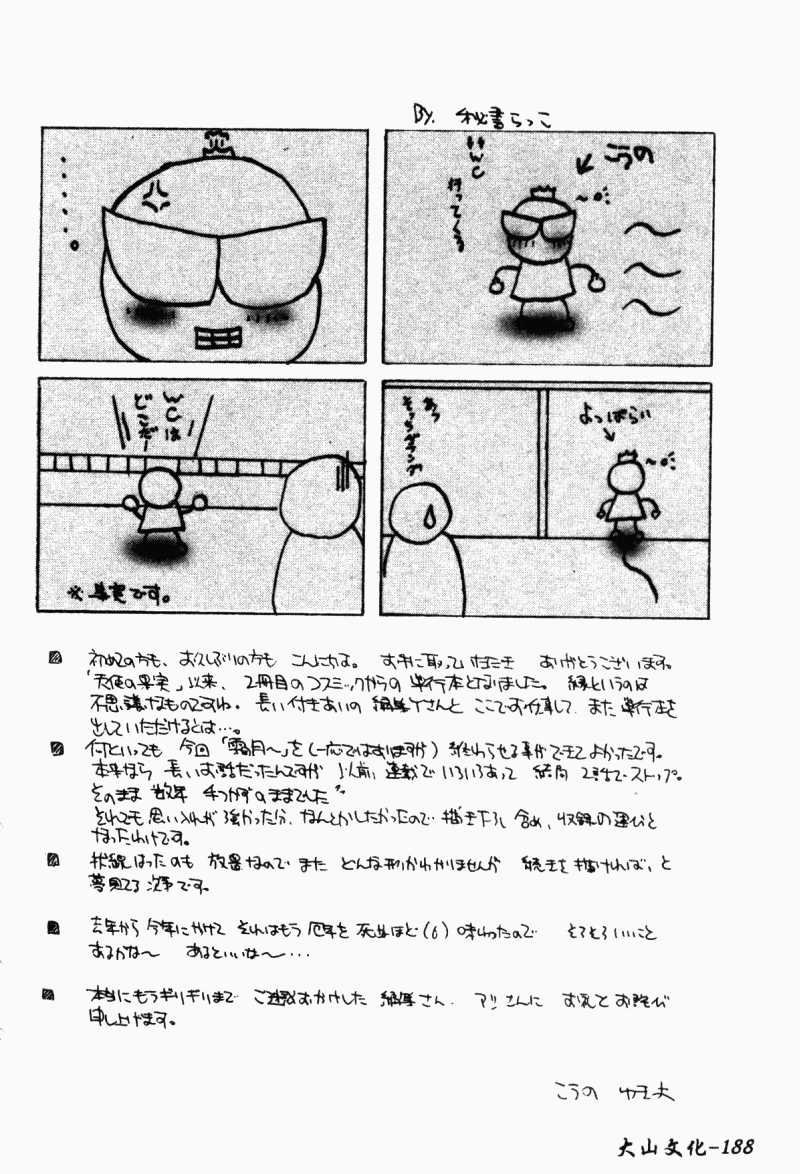 By. 秘書らっこ
こうの
WC
行ってくる
よっぱらい
あっ
そっちグランド
WCは
どこだー
※事実です。
初めての方も、お久しぶりの方も こんにちは。 お手に取っていただき ありがとうございます。
「天使の果実」以来、2冊目のコスミックからの 単行本となりました。 縁というのは
不思議なものですね。長い付きあいの 編集Yさんと ここでお仕事して、また単行本を
出していただけるとは…。
何といっても 今回「霜月〜」を(一応ではありますが) 終わらせる事ができてよかったです。
本来なら 長いお話だったんですが 以前、連載でいろいろあって 結局 2話でストップ。
そのまま 数年 手つかずのままでした
それでも思い入れが強かった分、なんとかしたかったので 描き下ろし含め、収録の運びと
なったわけです。
伏線はったのも 放置なので また どんな形かわかりませんが 続きを描ければ、と
夢見てる次第です。
去年から今年にかけて それはもう 厄年を 死ぬほど(6) 味わったので そろそろいいこと
あるかな〜 あるといいな〜…
本当にもうギリギリまで ご迷惑おかけした 編集さん、 アシさんに お礼とお詫び
申し上げます。
こうの ゆき夫
大山文化-188